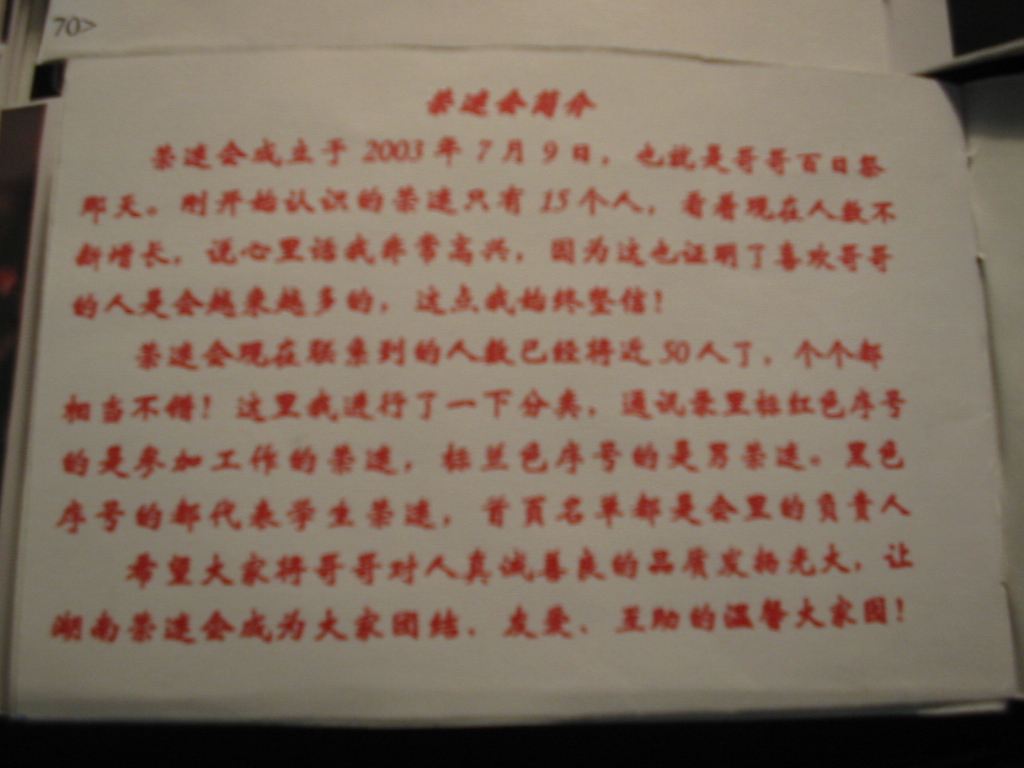 70>
荣迷会简介
荣迷会成立于 2003 年 7 月 9 日，也就是哥哥百日祭
那天。刚开始认识的荣迷只有 15 个人，看着现在人数不
断增长，说心里话我非常高兴，因为这也证明了喜欢哥哥
的人是会越来越多的，这点我始终坚信！
荣迷会现在联系到的人数已经将近 50 人了，个个都
相当不错！这里我进行了一下分类，通讯录里标红色序号
的是参加工作的荣迷，标兰色序号的是男荣迷。黑色
序号的都代表学生荣迷，首页名单都是会里的负责人
希望大家将哥哥对人真诚善良的品质发扬光大，让
湖南荣迷会成为大家团结、友爱、互助的温馨大家园！